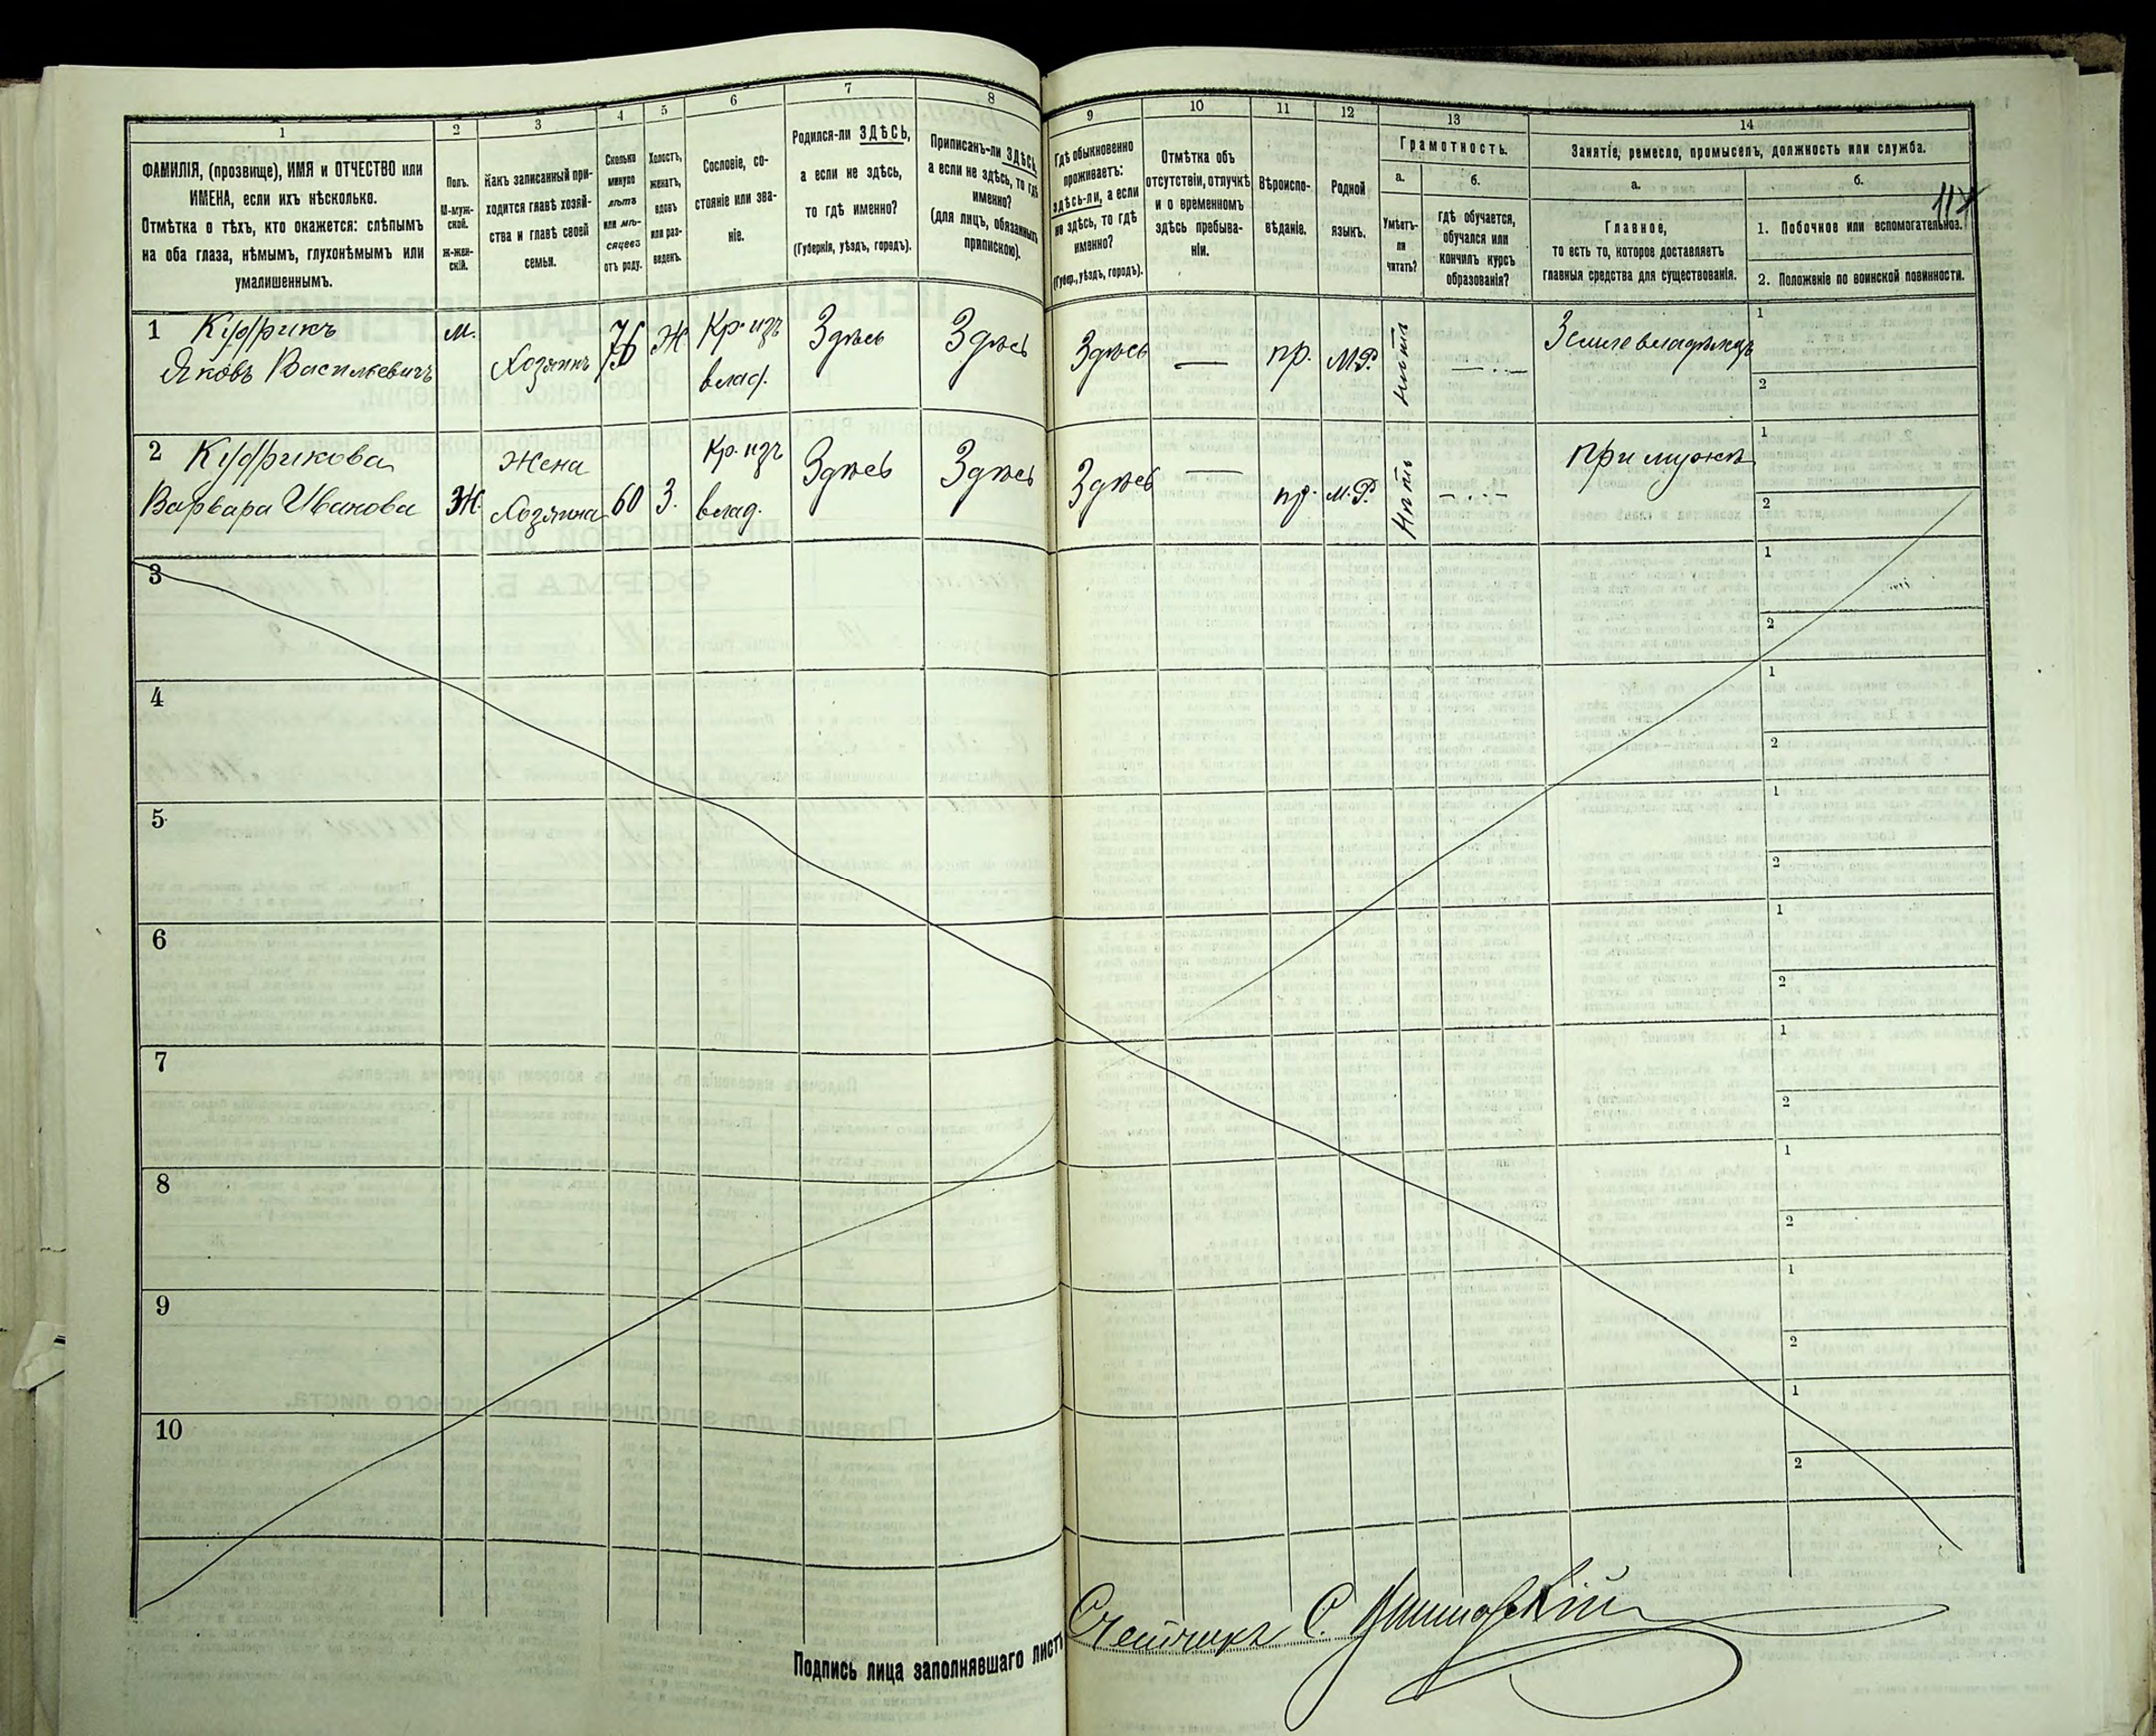 1
2
3
4
5
6
7
8
9
10
11
12
13
14
ФАМИЛІЯ, (прозвище), ИМЯ и ОТЧЕСТВО или
ИМЕНА, если ихъ нѣсколько.
Отмѣтка о тѣхъ, кто окажется: слѣпымъ
на оба глаза, нѣмымъ, глухонѣмымъ или
умалишеннымъ.
Полъ.
М-муж-
ской.
Ж-жен-
скій.
Какъ записанный при-
ходится главѣ хозяй-
ства и главѣ своей
семьи.
Сколько
минуло
лѣтъ
или мѣ-
сяцевъ
отъ роду.
Холостъ,
женатъ,
вдовъ
или раз-
веденъ.
Сословіе, со-
стояніе или зва-
ніе.
Родился-ли ЗДѢСЬ,
а если не здѣсь,
то гдѣ именно?
(Губернія, уѣздъ, городъ).
Приписанъ-ли ЗДѢСЬ,
а если не здѣсь, то гдѣ
именно?
(для лицъ, обязанныхъ
припискою).
Гдѣ обыкновенно
проживаетъ:
здѣсь-ли, а если
не здѣсь, то гдѣ
именно?
(Губер., уѣздъ, городъ).
Отмѣтка объ
отсутствіи, отлучкѣ
и о временномъ
здѣсь пребыва-
ніи.
Вѣроиспо-
вѣданіе.
Родной
языкъ.
Грамотность.
а.
Умѣетъ-
ли
читать?
б.
гдѣ обучается,
обучался или
кончилъ курсъ
образованія?
Занятіе, ремесло, промыселъ, должность или служба.
а.
Главное,
то есть то, которое доставляетъ
главныя средства для существованія.
б.
1. Побочное или вспомогательное.
2. Положеніе по воинской повинности.
1 Яковъ Васильевичъ
м.
Хозяинъ
76
Ж
Кр. изъ
влад.
Здѣсь
Здѣсь
Здѣсь
—
пр.
М.Р.
Нѣтъ
Землевладѣлецъ
1
2
2
Варвара Иванова
Ж.
Жена
Хозяина
60
З.
Кр. изъ
влад.
Здѣсь
Здѣсь
Здѣсь
—
пр.
М.Р.
Нѣтъ
при мужѣ
1
2
3
1
2
4
1
2
5
1
2
6
1
2
7
1
2
8
1
2
9
1
2
10
1
2
Подпись лица заполнявшаго листъ
Счетчикъ С.